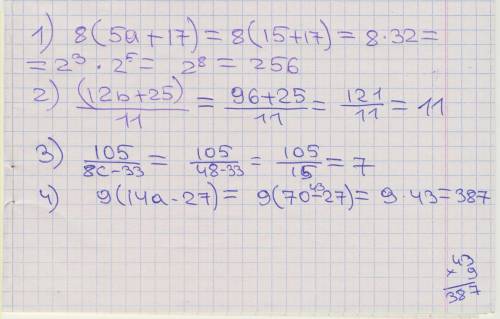 1) 8(5a+17)= 8(15+17)= 8·32=
= 2³ · 2⁵ = 2⁸ = 256
2) (12b+25)/11 = 96+25/11 = 121/11 = 11
3) 105/8c-33 = 105/48-33 = 105/15 = 7
4) 9(14a-27)= 9(70-27)= 9·43=387
43
43
× 9
387